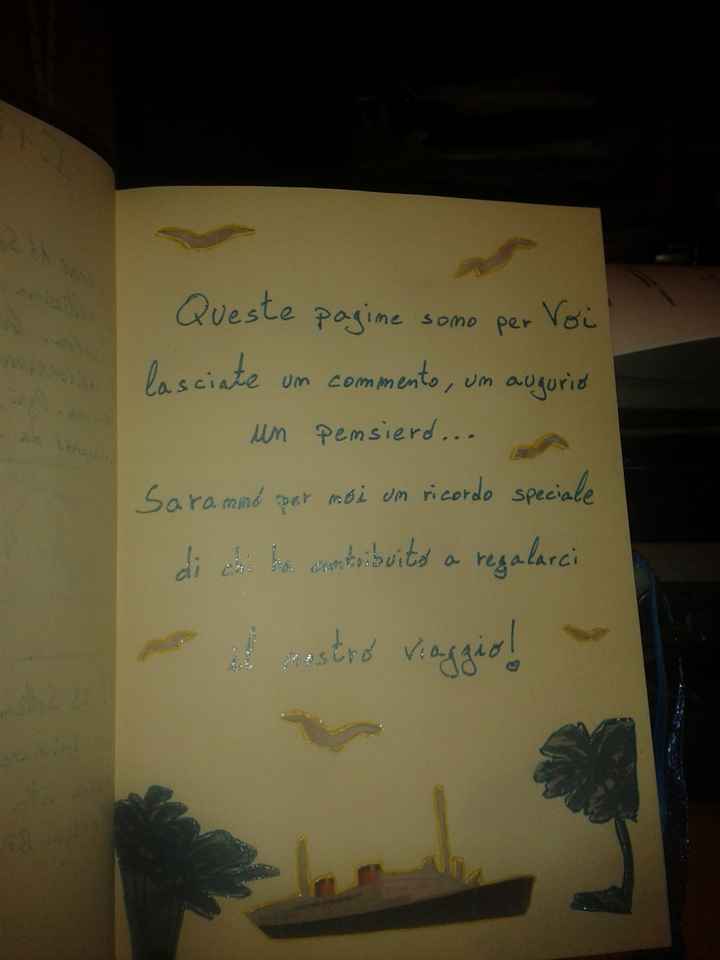 Queste pagine sono per Voi
lasciate un commento, un augurio
un pensiero...
Saranno per noi un ricordo speciale
di chi ha contribuito a regalarci
il nostro viaggio!